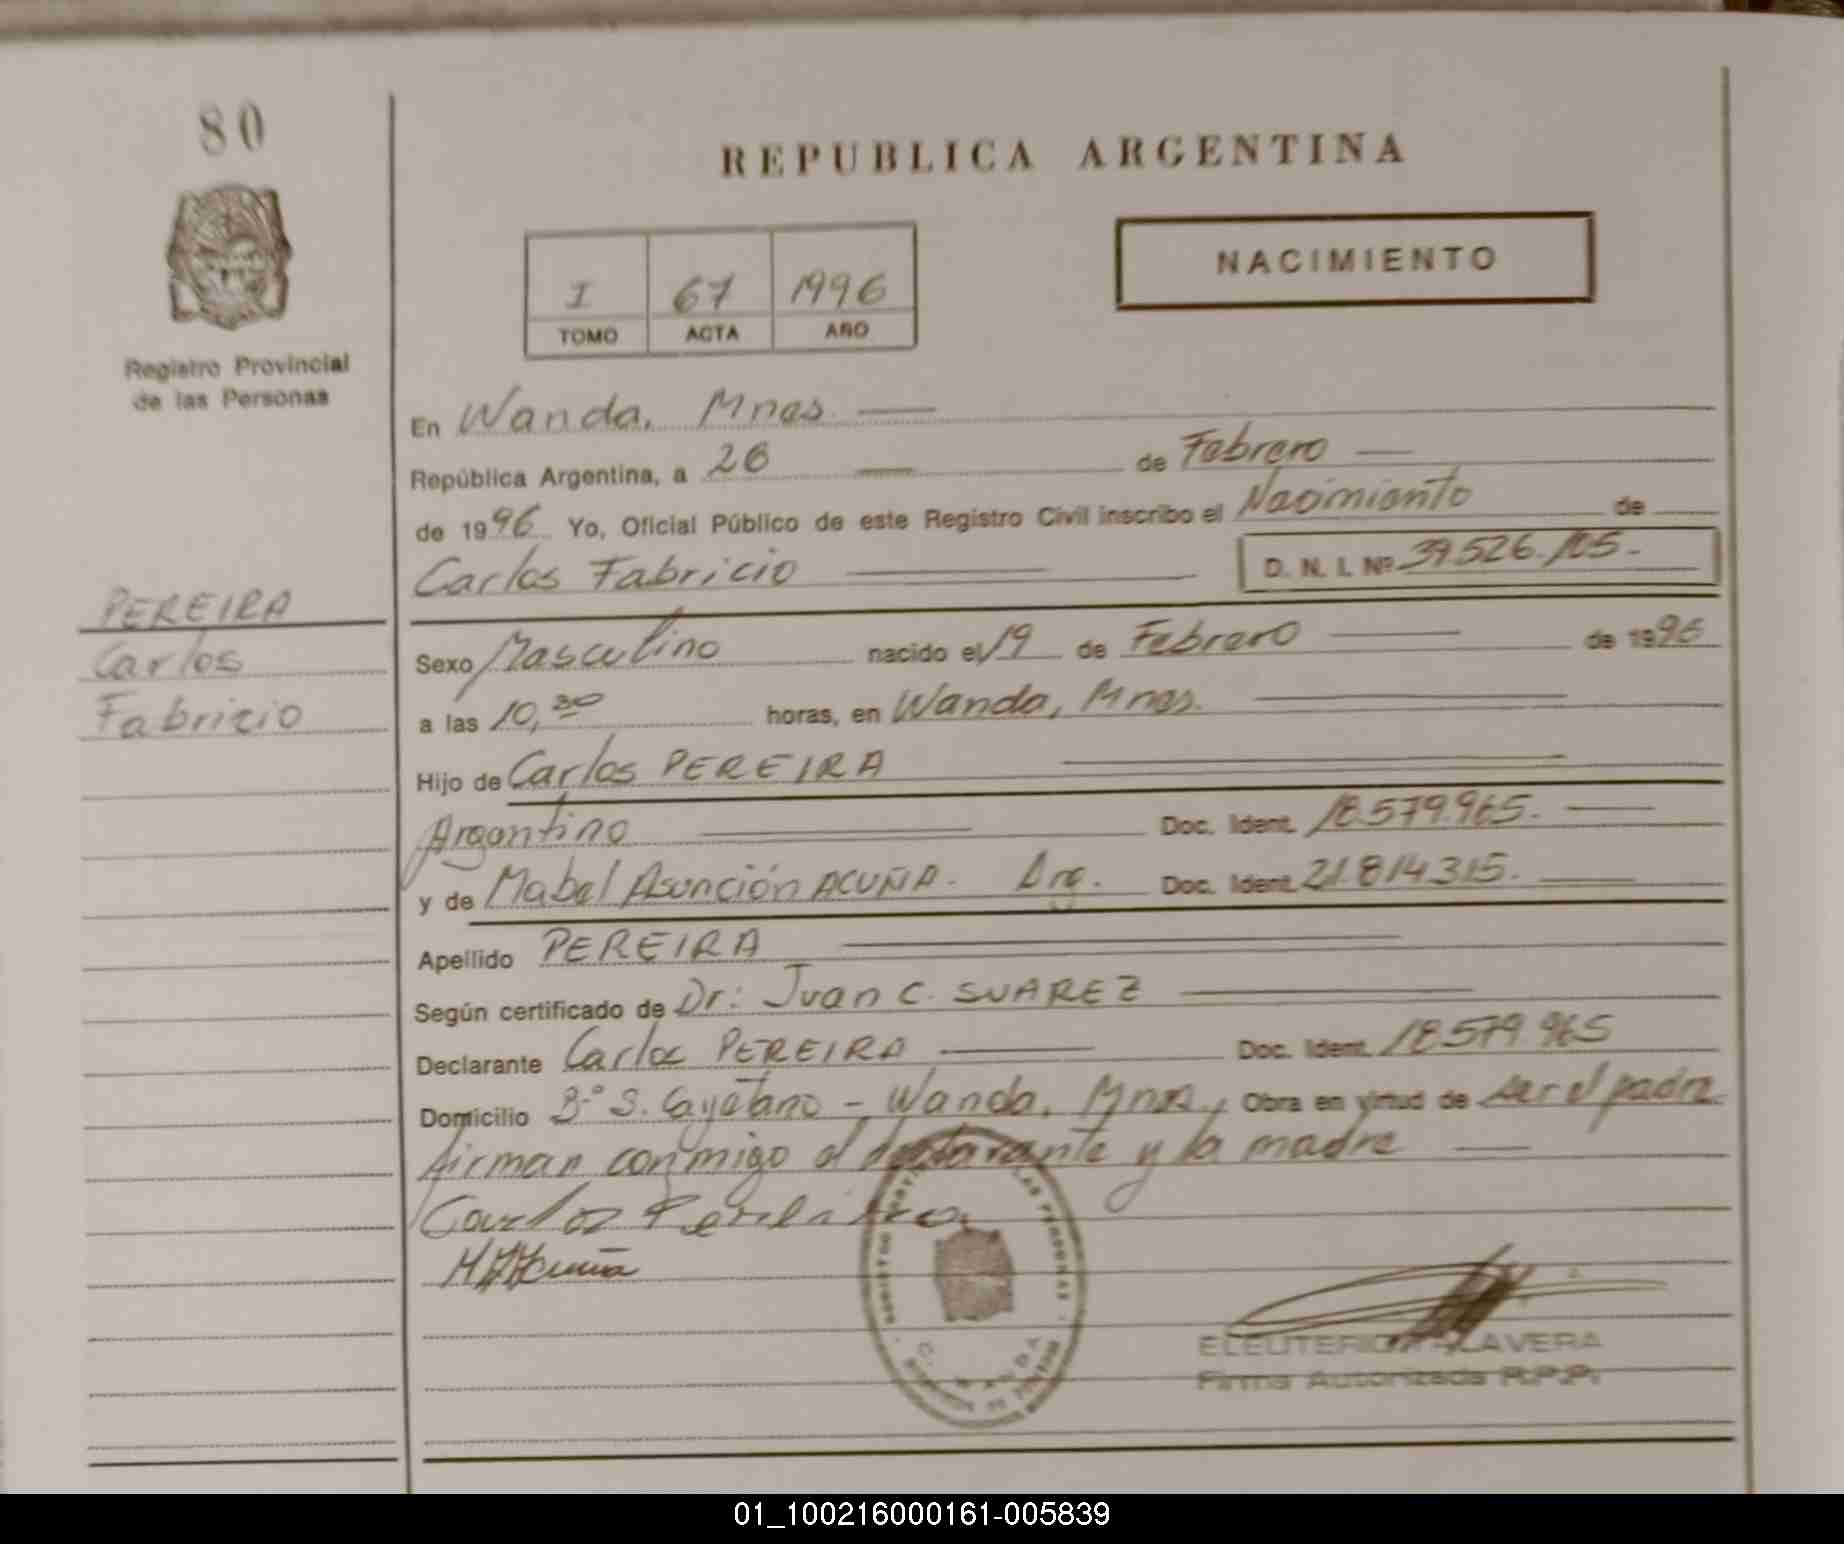 80
REPUBLICA ARGENTINA
NACIMIENTO
I 67 1996
TOMO ACTA AÑO
Registro Provincial
de las Personas
En Wanda, Mnes.
República Argentina, a 26 de Febrero
de 1996 Yo, Oficial Público de este Registro Civil inscribo el Nacimiento de
Carlos Fabricio D. N. I. Nº 39.526.105.
PEREIRA
Carlos
Fabricio
Sexo Masculino nacido el 19 de Febrero de 1996
a las 10,30 horas, en Wanda, Mnes.
Hijo de Carlos PEREIRA
Argentino Doc. Ident. 18.579.965.
y de Mabel Asunción ACUÑA. Arg. Doc. Ident. 21.814.315.
Apellido PEREIRA
Según certificado de Dr: Juan C. SUAREZ
Declarante Carlos PEREIRA Doc. Ident. 18.579.965
Domicilio Bº S. Cayetano - Wanda, Mnes, Obra en virtud de ser el padre
firman conmigo el declarante y la madre
Carlos Pereira
Acuña
ELEUTERIO TALAVERA
Firma Autorizada R.P.P.
01_100216000161-005839